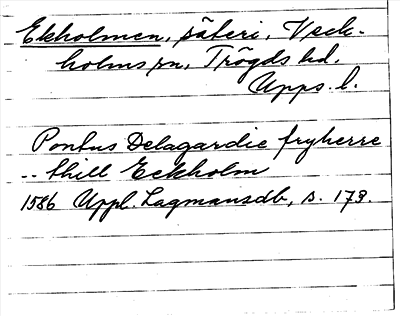 Ekholmen, säteri, Veck-
holms sn, Trögds hd.
Upps. l.
Pontus Delagardie fryherre
.. thill Eckholm
1586 Uppl. Lagmansdb, s. 179.